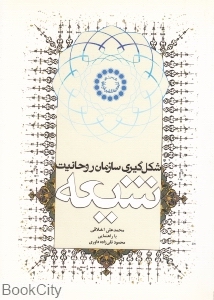 شکل‌گیری سازمان روحانیت
شیعه
محمدعلی اخلاقی
با راهنمایی
محمود تقی‌زاده داوری
BookCity